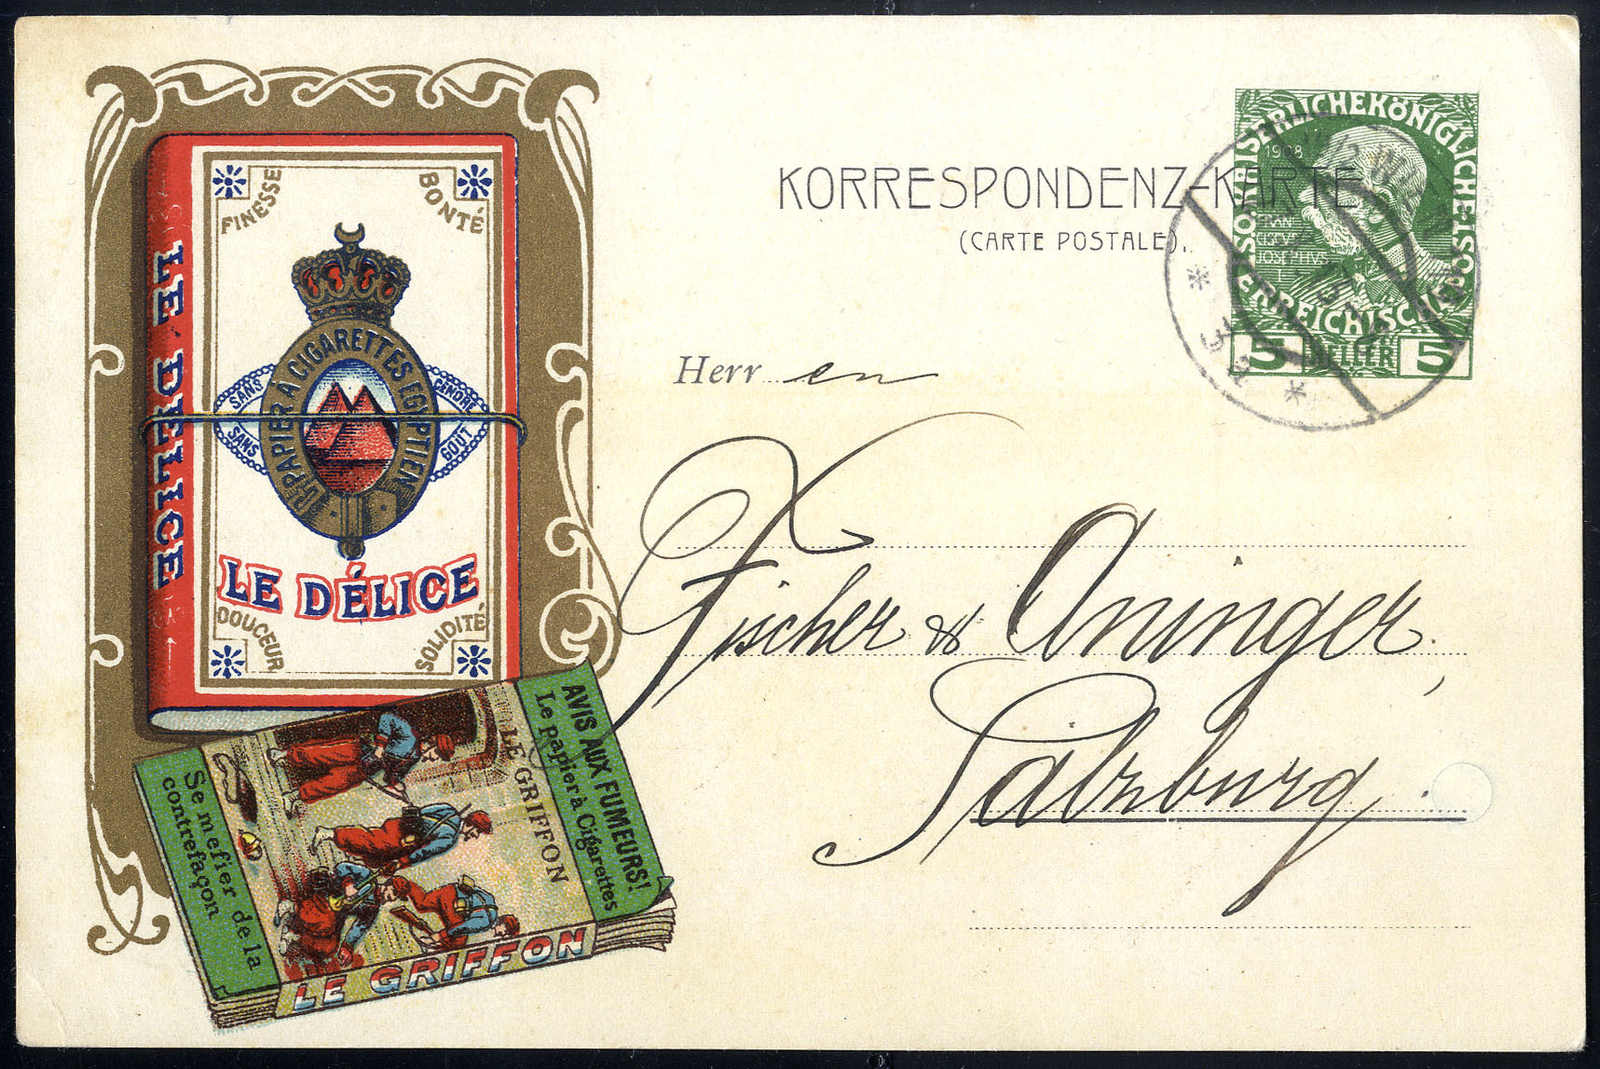 KORRESPONDENZ-KARTE
(CARTE POSTALE).
KAISERLICHEKÖNIGLICHE
ÖSTERREICHISCHE POST
1908
FRAN
CISCVS
JOSEPHVS
I
5 HELLER 5
Herr en
Fischer & Aninger.
Salzburg.
LE DELICE
FINESSE
BONTÉ
PAPIER À CIGARETTES EGYPTIEN
SANS CENDRE
SANS GOUT
LE DÉLICE
DOUCEUR
SOLIDITÉ
AVIS AUX FUMEURS!
Le Papier à Cigarettes
LE GRIFFON
Se mefier de la
contrefaçon
LE GRIFFON